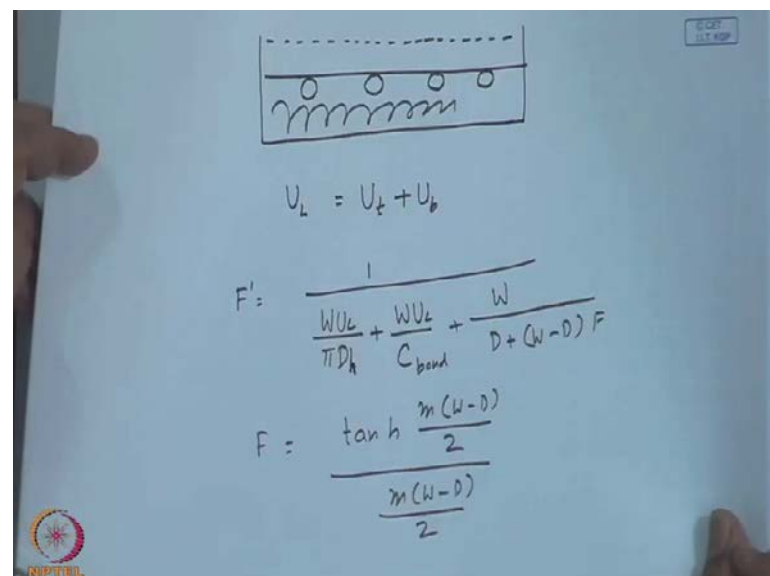 C.CET
I.I.T. KGP
U_L = U_t + U_b
F' = 1 / (WU_L/πDh + WU_L/C_bond + W/(D + (W-D) F))
F = tan h m(W-D)/2 / m(W-D)/2
NPTEL